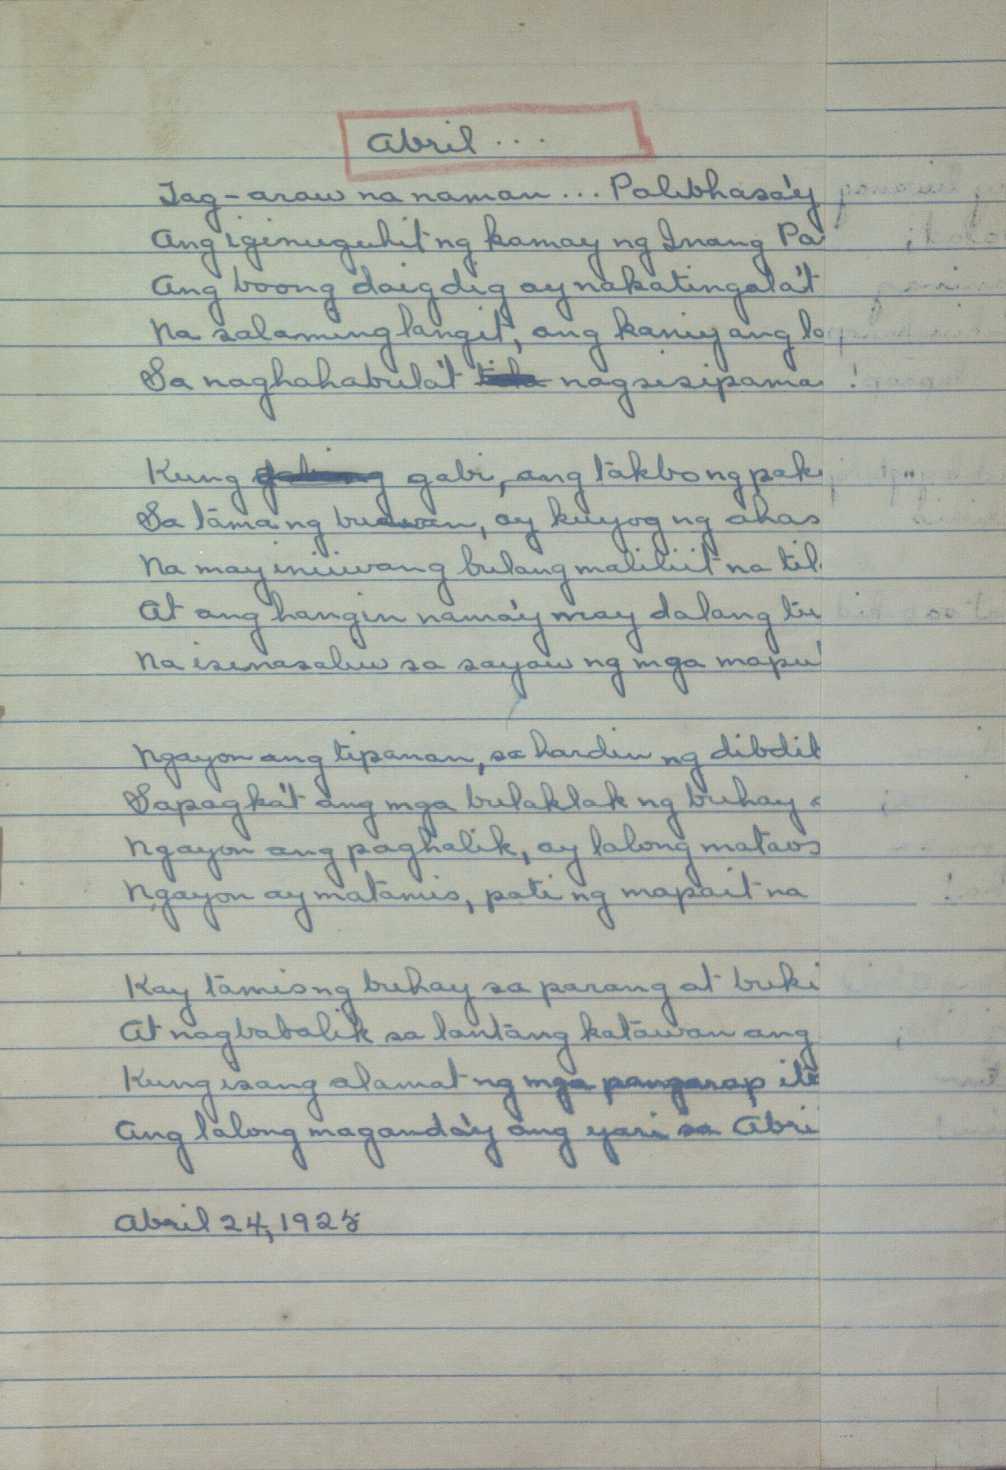 Abril ...
Tag-araw na naman ... Palibhasa'y
Ang iginuguhit ng kamay ng Inang Pa
Ang boong daigdig ay nakatingala't
Na salaming langit, ang kaniyang la
Sa naghahabula't nagsisipama
Kung gabi, ang takbo ng pak
Sa tama ng buwan, ay kuyog ng ahas
Na may iniiwang bulang maliliit na til
At ang hangin nama'y may dalang tu
Na isinasaliw sa sayaw ng mga mapu
Ngayon ang tipanan, sa hardin ng dibdib
Sapagka't ang mga bulaklak ng buhay
Ngayon ang paghalik, ay lalong mataos
Ngayon ay matamis, pati ng mapait na
Kay tamis ng buhay sa parang at buki
At nagbabalik sa lantang katawan ang
Kung isang alamat ng mga pangarap it
Ang lalong maganda'y ang yari sa Abri
Abril 24, 1925